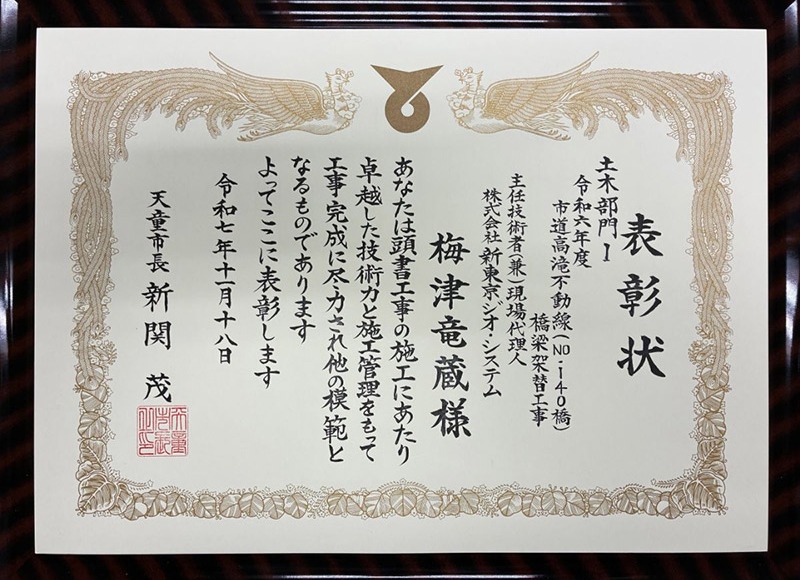 表彰状
土木部門Ⅰ
令和六年度
市道高滝不動線(NO.140橋)
橋梁架替工事
主任技術者(兼)現場代理人
株式会社新東京ジオ・システム
梅津竜蔵様
あなたは頭書工事の施工にあたり
卓越した技術力と施工管理をもって
工事完成に尽力され他の模範と
なるものであります
よってここに表彰します
令和七年十一月十八日
天童市長 新関 茂